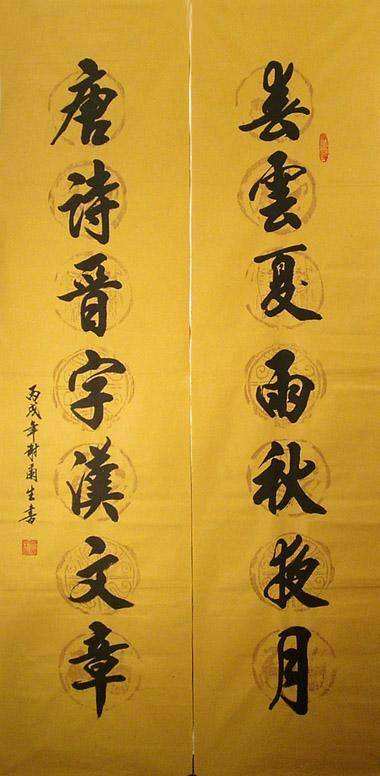 春雲夏雨秋夜月
唐詩晉字漢文章
丙戌年生書